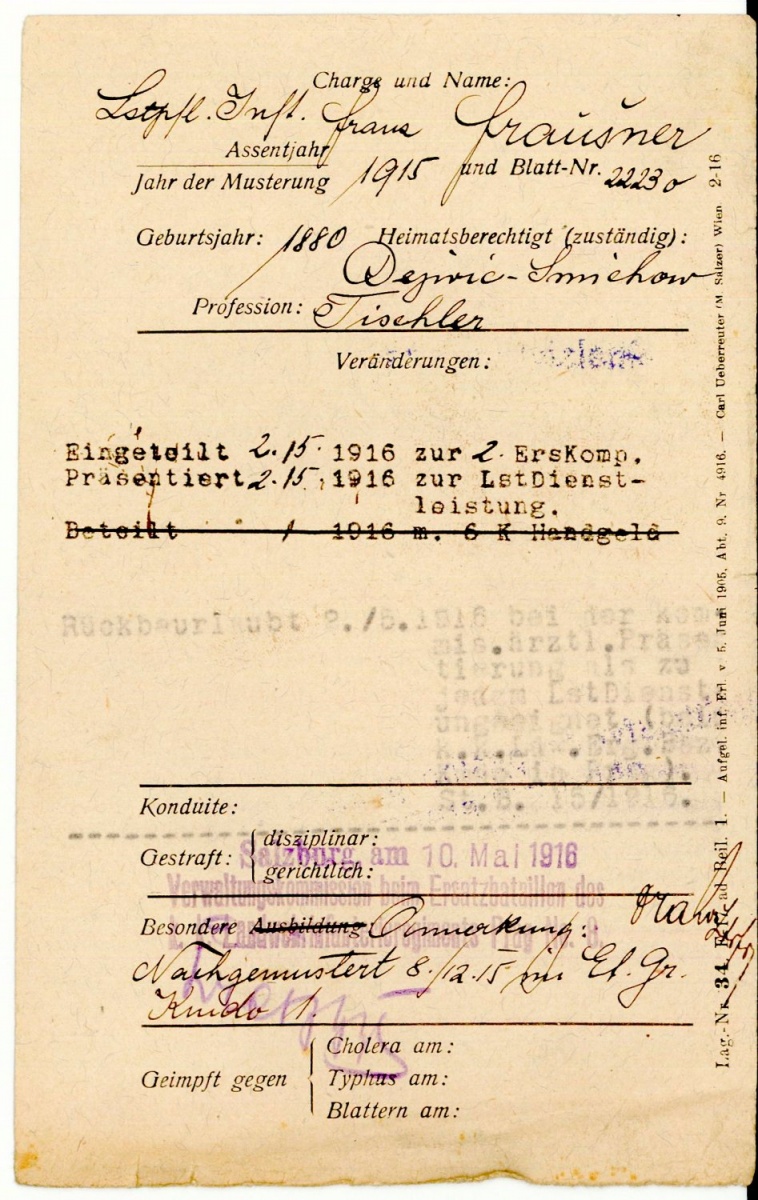 Charge und Name:
Lstpfl. Inft. Franz Fraušner
Assentjahr
Jahr der Musterung 1915 und Blatt-Nr. 2223
Geburtsjahr: 1880 Heimatsberechtigt (zuständig):
Dejwic-Smichow
Profession: Tischler
Veränderungen:
Eingeteilt 2. 15. 1916 zur 2. ErsKomp.
Präsentiert 2. 15. 1916 zur LstDienst-
leistung.
Beteilt / 1916 m. 6 K Handgeld
Rückbeurlaubt 2./5.1916 bei der Kom-
mis.ärztl.Präsen
tierung als zu
jedem LstDienst
ungeeignet
15/1916.
Konduite:
Gestraft: disziplinar:
gerichtlich:
Salzburg, am 10. Mai 1916
Verwaltungskommission beim Ersatzbataillon des
Besondere Ausbildung Anmerkung:
Nachgemustert 8./12.15 im Et. Gr.
Kmdo 1.
Geimpft gegen
Cholera am:
Typhus am:
Blattern am:
Lag.-Nr. 34. ad Beil. 1. — Aufgel. inf. Erl. v. 5. Juni 1905, Abt. 9, Nr. 4916. — Carl Ueberreuter (M. Salzer) Wien. 2-16